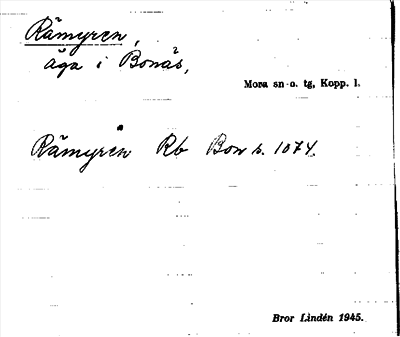 Råmyren,
äga i Bonäs,
Mora sn o. tg, Kopp. l.
Råmyren Rb Bon s. 1074.
Bror Lindén 1945.